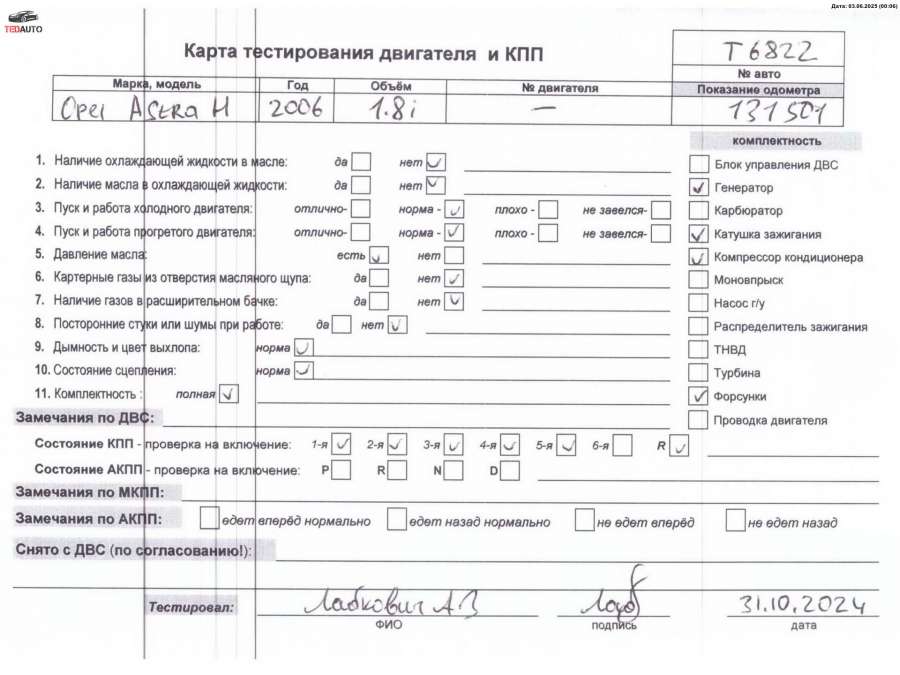 Дата: 03.06.2025 (00:06)
TEDAUTO
Карта тестирования двигателя и КПП
T6822
№ авто
Марка, модель Год Объём № двигателя Показание одометра
Opel Astra H 2006 1.8i — 131501
комплектность
1. Наличие охлаждающей жидкости в масле: да нет
Блок управления ДВС
2. Наличие масла в охлаждающей жидкости: да нет
Генератор
3. Пуск и работа холодного двигателя: отлично- норма - плохо - не завелся-
Карбюратор
4. Пуск и работа прогретого двигателя: отлично- норма - плохо - не завелся-
Катушка зажигания
5. Давление масла: есть нет
Компрессор кондиционера
6. Картерные газы из отверстия масляного щупа: да нет
Моновпрыск
7. Наличие газов в расширительном бачке: да нет
Насос г/у
8. Посторонние стуки или шумы при работе: да нет
Распределитель зажигания
9. Дымность и цвет выхлопа: норма
ТНВД
10. Состояние сцепления: норма
Турбина
11. Комплектность : полная
Форсунки
Замечания по ДВС:
Проводка двигателя
Состояние КПП - проверка на включение: 1-я 2-я 3-я 4-я 5-я 6-я R
Состояние АКПП - проверка на включение: P R N D
Замечания по МКПП:
Замечания по АКПП: едет вперёд нормально едет назад нормально не едет вперёд не едет назад
Снято с ДВС (по согласованию!):
Тестировал: Лабкович А.В 31.10.2024
ФИО подпись дата